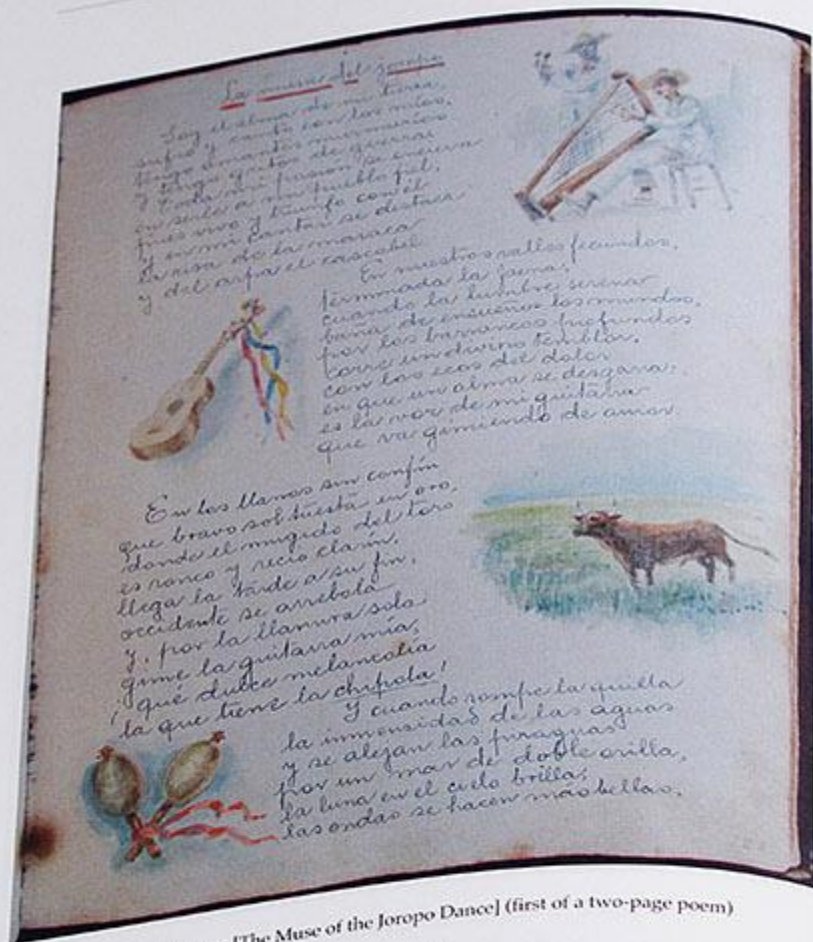 La musa del joropo
Soy el alma de mi tierra,
sufro y canto con los míos,
tengo amantes murmurios
y tengo gritos de guerra:
y toda mi pasión se encierra
en serle a mi pueblo fiel,
pues vivo y triunfo con él
y en mi cantar se destaca
la risa de la maraca
y del arpa el cascabel.
En nuestros valles fecundos,
terminada la faena,
cuando la lumbre serena
baña de ensueños los mundos,
por los barrancos profundos
corre un divino temblor,
con los ecos del dolor
en que un alma se desgarra:
es la voz de mi guitarra
que va gimiendo de amor.
En los llanos sin confín
que bravo sol tuesta en oro,
donde el mugido del toro
es ronco y recio clarín,
llega la tarde a su fin,
occidente se arrebola
y, por la llanura sola
gime la guitarra mía,
¡qué dulce melancolía
la que tiene la chipola!
Y cuando rompe la quilla
la inmensidad de las aguas
y se alejan las piraguas
por un mar de doble orilla,
la luna en el cielo brilla;
las ondas se hacen más bellas,
[The Muse of the Joropo Dance] (first of a two-page poem)